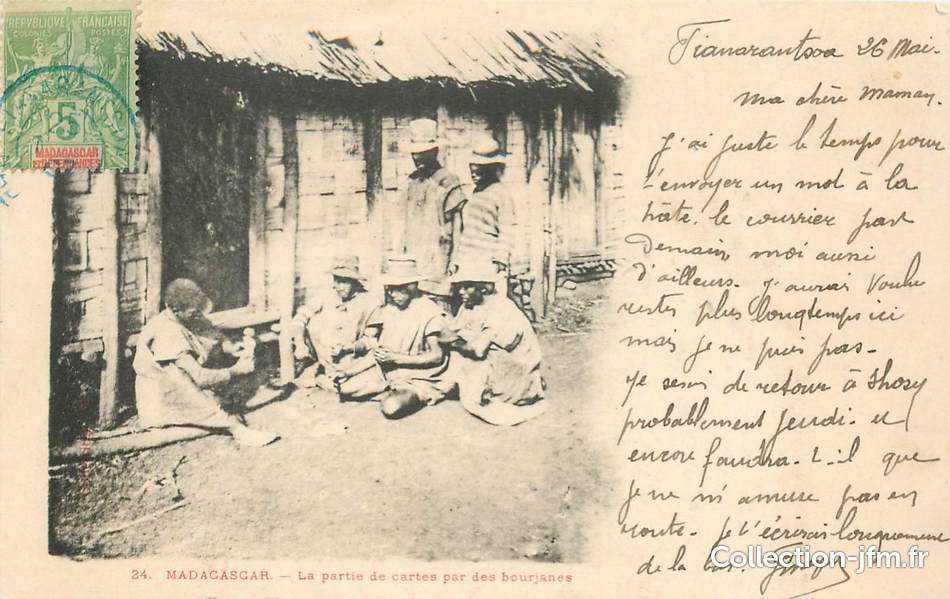 RÉPUBLIQUE FRANÇAISE
COLONIES POSTES
5
MADAGASCAR
ET DÉPENDANCES
Fianarantsoa 26 Mai-
Ma chère Maman.
J'ai juste le temps pour
t'envoyer un mot à la
hâte. le courrier part
Demain moi aussi
d'ailleurs. J'aurais voulu
rester plus longtemps ici
mais je ne puis pas-
Je serai de retour à Ihosy
probablement Jeudi. et
encore faudra-t-il que
je ne m'amuse pas en
route- Je t'écrirai longuement
de la bas.
Collection-jfm.fr
24. MADAGASCAR. - La partie de cartes par des bourjanes